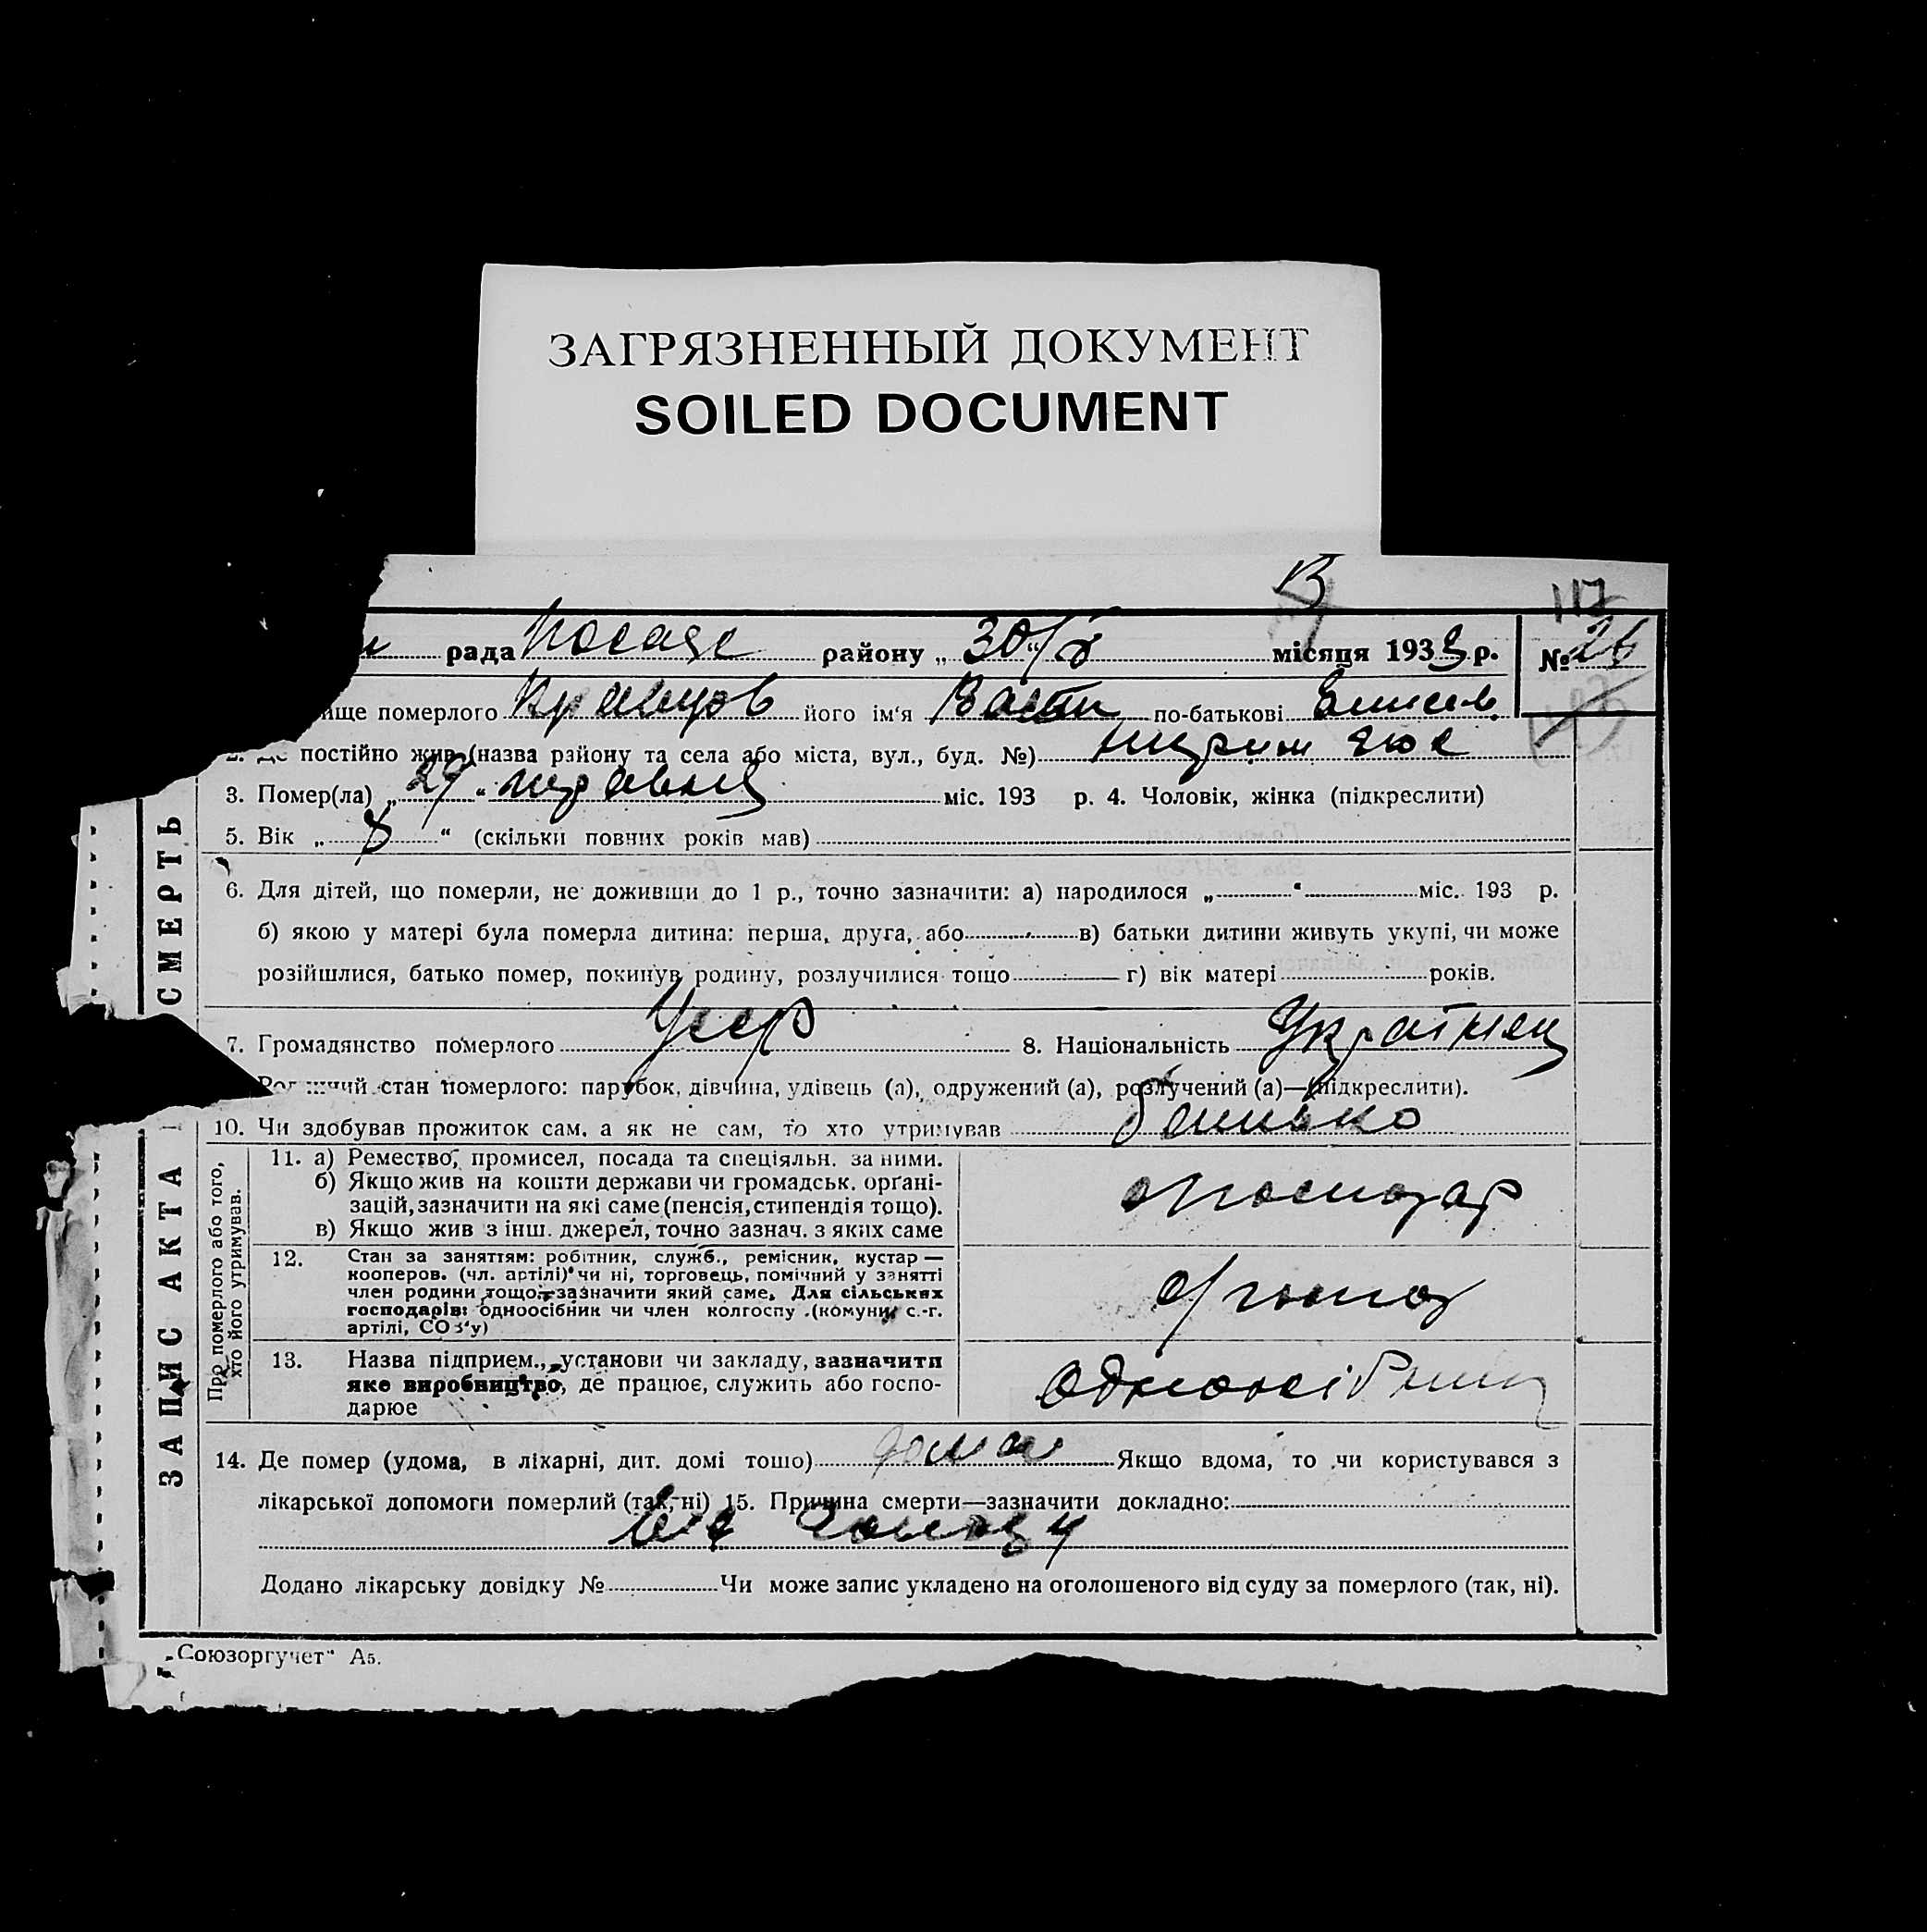 ЗАГРЯЗНЕННЫЙ ДОКУМЕНТ
SOILED DOCUMENT
В
117
рада району „ 30/V місяця 1933 р. № 26
ище померлого Кравцов його ім'я по-батькові
2. Де постійно жив (назва району та села або міста, вул., буд. №)
3. Помер(ла) „ 29 “ травня міс. 193 р. 4. Чоловік, жінка (підкреслити)
5. Вік „ 8 “ (скільки повних років мав)
6. Для дітей, що померли, не доживши до 1 р., точно зазначити: а) народилося „ “ міс. 193 р.
б) якою у матері була померла дитина: перша, друга, або в) батьки дитини живуть укупі, чи може
розійшлися, батько помер, покинув родину, розлучилися тощо г) вік матері років.
7. Громадянство померлого Усср 8. Національність Українец
стан померлого: парубок, дівчина, удівець (а), одружений (а), розлучений (а)—(підкреслити).
10. Чи здобував прожиток сам, а як не сам, то хто утримував батько
11. а) Ремество, промисел, посада та спеціяльн. за ними.
б) Якщо жив на кошти держави чи громадськ. орґані-
зацій, зазначити на які саме (пенсія, стипендія тощо).
в) Якщо жив з інш. джерел, точно зазнач. з яких саме
12. Стан за заняттям: робітник, служб., ремісник, кустар —
кооперов. (чл. артілі) чи ні, торговець, помічний у занятті
член родини тощо—зазначити який саме. Для сільських
господарів: одноосібник чи член колгоспу (комуни, с.-г.
артілі, СОЗ'у)
13. Назва підприєм., установи чи закладу, зазначити
яке виробництво, де працює, служить або госпо-
дарює
Одноосібник
14. Де помер (удома, в лікарні, дит. домі тощо) дома Якщо вдома, то чи користувався з
лікарської допомоги померлий (так, ні) 15. Причина смерти—зазначити докладно:
від голоду
Додано лікарську довідку № Чи може запис укладено на оголошеного від суду за померлого (так, ні).
„Союзоргучет“ А5.
ЗАПИС АКТА
СМЕРТЬ
Про померлого або того,
хто його утримував.